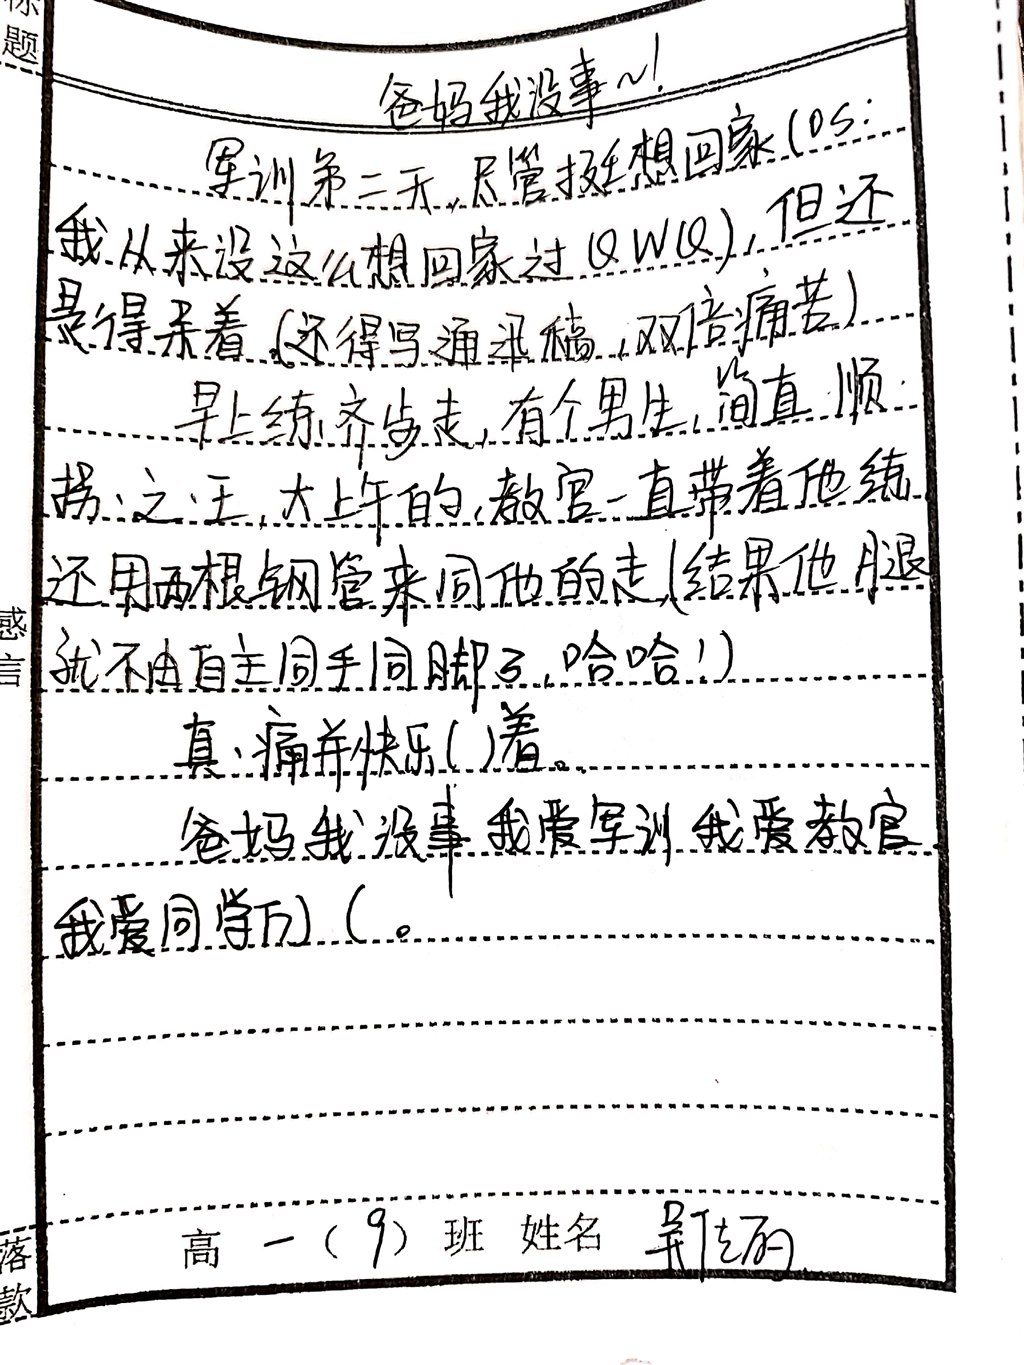 标题
爸妈我没事~!
军训第二天,尽管挺想回家(OS:
我从来没这么想回家过QWQ),但还
是得呆着。(还得写通讯稿,双倍痛苦)
早上练齐步走,有个男生,简直顺·
拐·之·王,大上午的,教官一直带着他练,
还用两根钢管来同他的走,(结果他腿
就不由自主同手同脚了,哈哈!)
真·痛并快乐()着。
爸妈我没事 我爱军训 我爱教官
我爱同学们 (。
感言
落款
高一(9)班 姓名